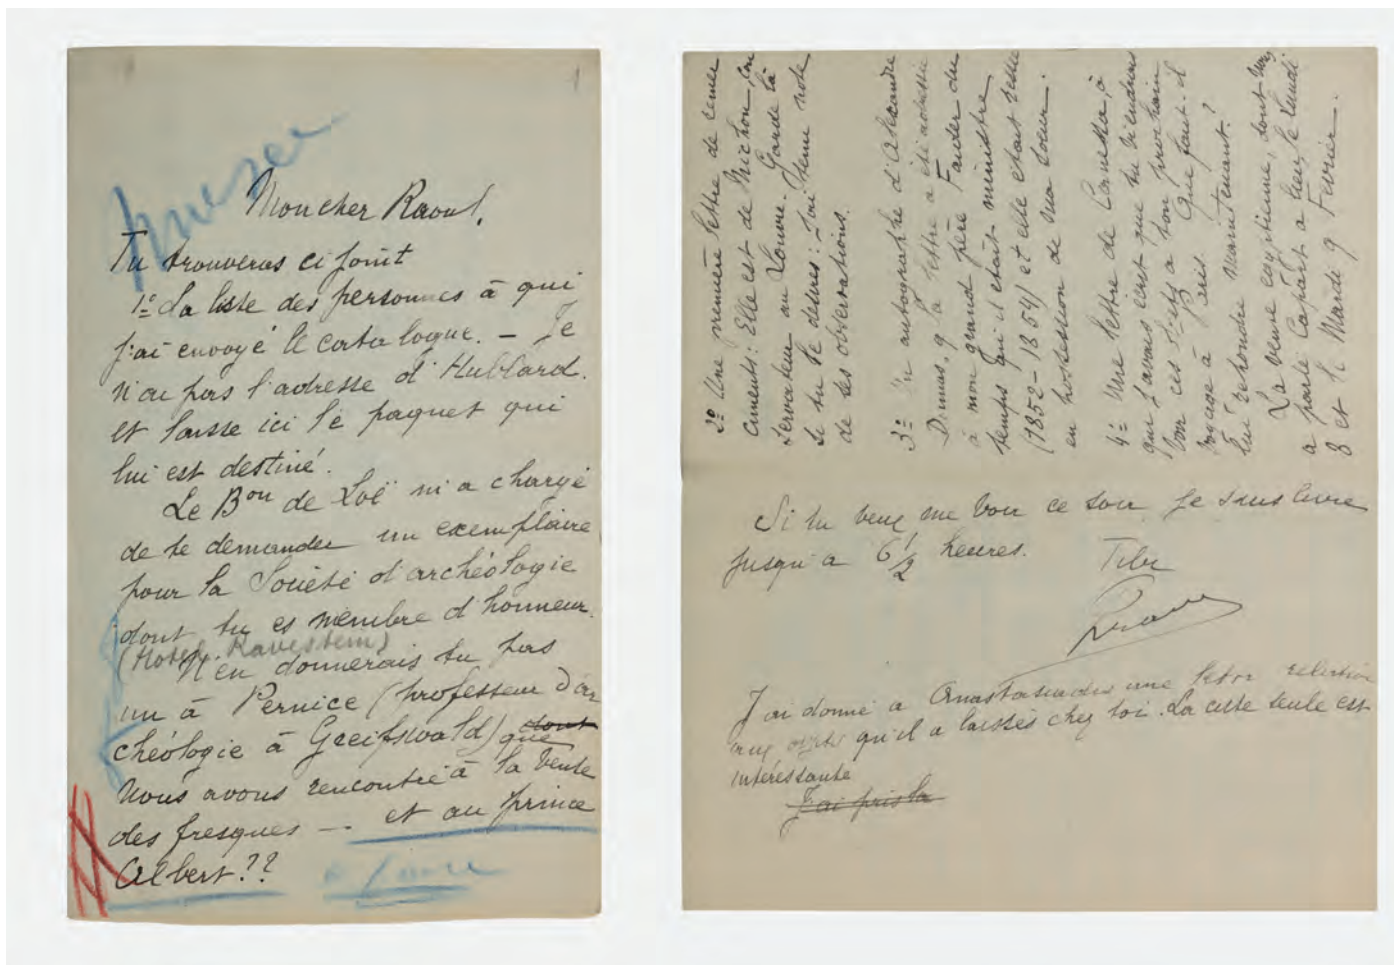 1
musée
Mon cher Raoul,
Tu trouveras ci joint
1º La liste des personnes à qui
j'ai envoyé le catalogue. — Je
n'ai pas l'adresse d'Hublard.
et laisse ici le paquet qui
lui est destiné.
Le Bon de Loë m'a chargé
de te demander un exemplaire
pour la Société d'archéologie
dont tu es membre d'honneur.
(Hotel Ravestein)
N'en donnerais tu pas
un à Pernice (professeur d'ar
chéologie à Greifswald) dont
que
nous avons rencontré à la vente
des fresques — et au prince
Albert??
à faire
2º Une première lettre de remer
ciements: Elle est de Michon, con
servateur au Louvre. Garde la
si tu le desires: J'ai tenu note
de ses observations.
3º Un autographe d'Alexandre
Dumas, q la lettre a été adressée
à mon grand père Faider du
temps qu'il était ministre
(1852-1854) et elle était restée
en possession de ma soeur.
4º Une lettre de Canessa, à
qui j'avais écrit que tu viendrais
voir ces à ton prochain
voyage à Paris. Que faut-il
lui répondre maintenant?
La vente égyptienne, dont nous
a parlé Capart a lieu le lundi
8 et le Mardi 9 Fevrier.
Si tu veux me voir ce soir je suis livre
jusqu'à 6 1/2 heures.
J'ai donné à Anastasiadis une
aux objets qu'il a laissés chez toi. La ciste seule est
intéressante
J'ai pris la